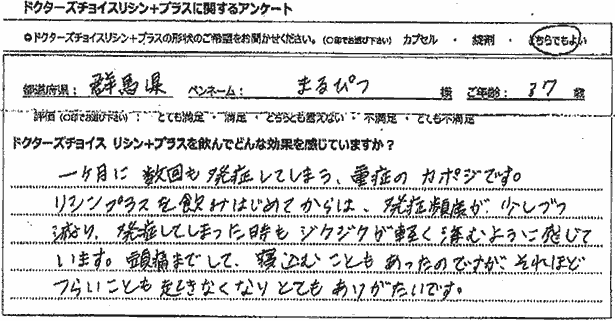 ドクターズチョイスリシン+プラスに関するアンケート
○ドクターズチョイスリシン+プラスの形状のご希望をお聞かせください。(○印でお選び下さい) カプセル ・ 錠剤 ・ どちらでもよい
都道府県: 群馬県 ペンネーム: まるぴつ 様 ご年齢: 37 歳
評価 (○印でお選び下さい) : とても満足 ・ 満足 ・ どちらとも言えない ・ 不満足 ・ とても不満足
ドクターズチョイス リシン+プラスを飲んでどんな効果を感じていますか?
一ヶ月に数回も発症してしまう、重症のカポジです。
リシンプラスを飲みはじめてからは、発症頻度が少しづつ
減り、発症してしまった時もジクジクが軽く済むように感じて
います。頭痛までして、寝込むこともあったのですが、それほど
つらいことも起きなくなりとてもありがたいです。